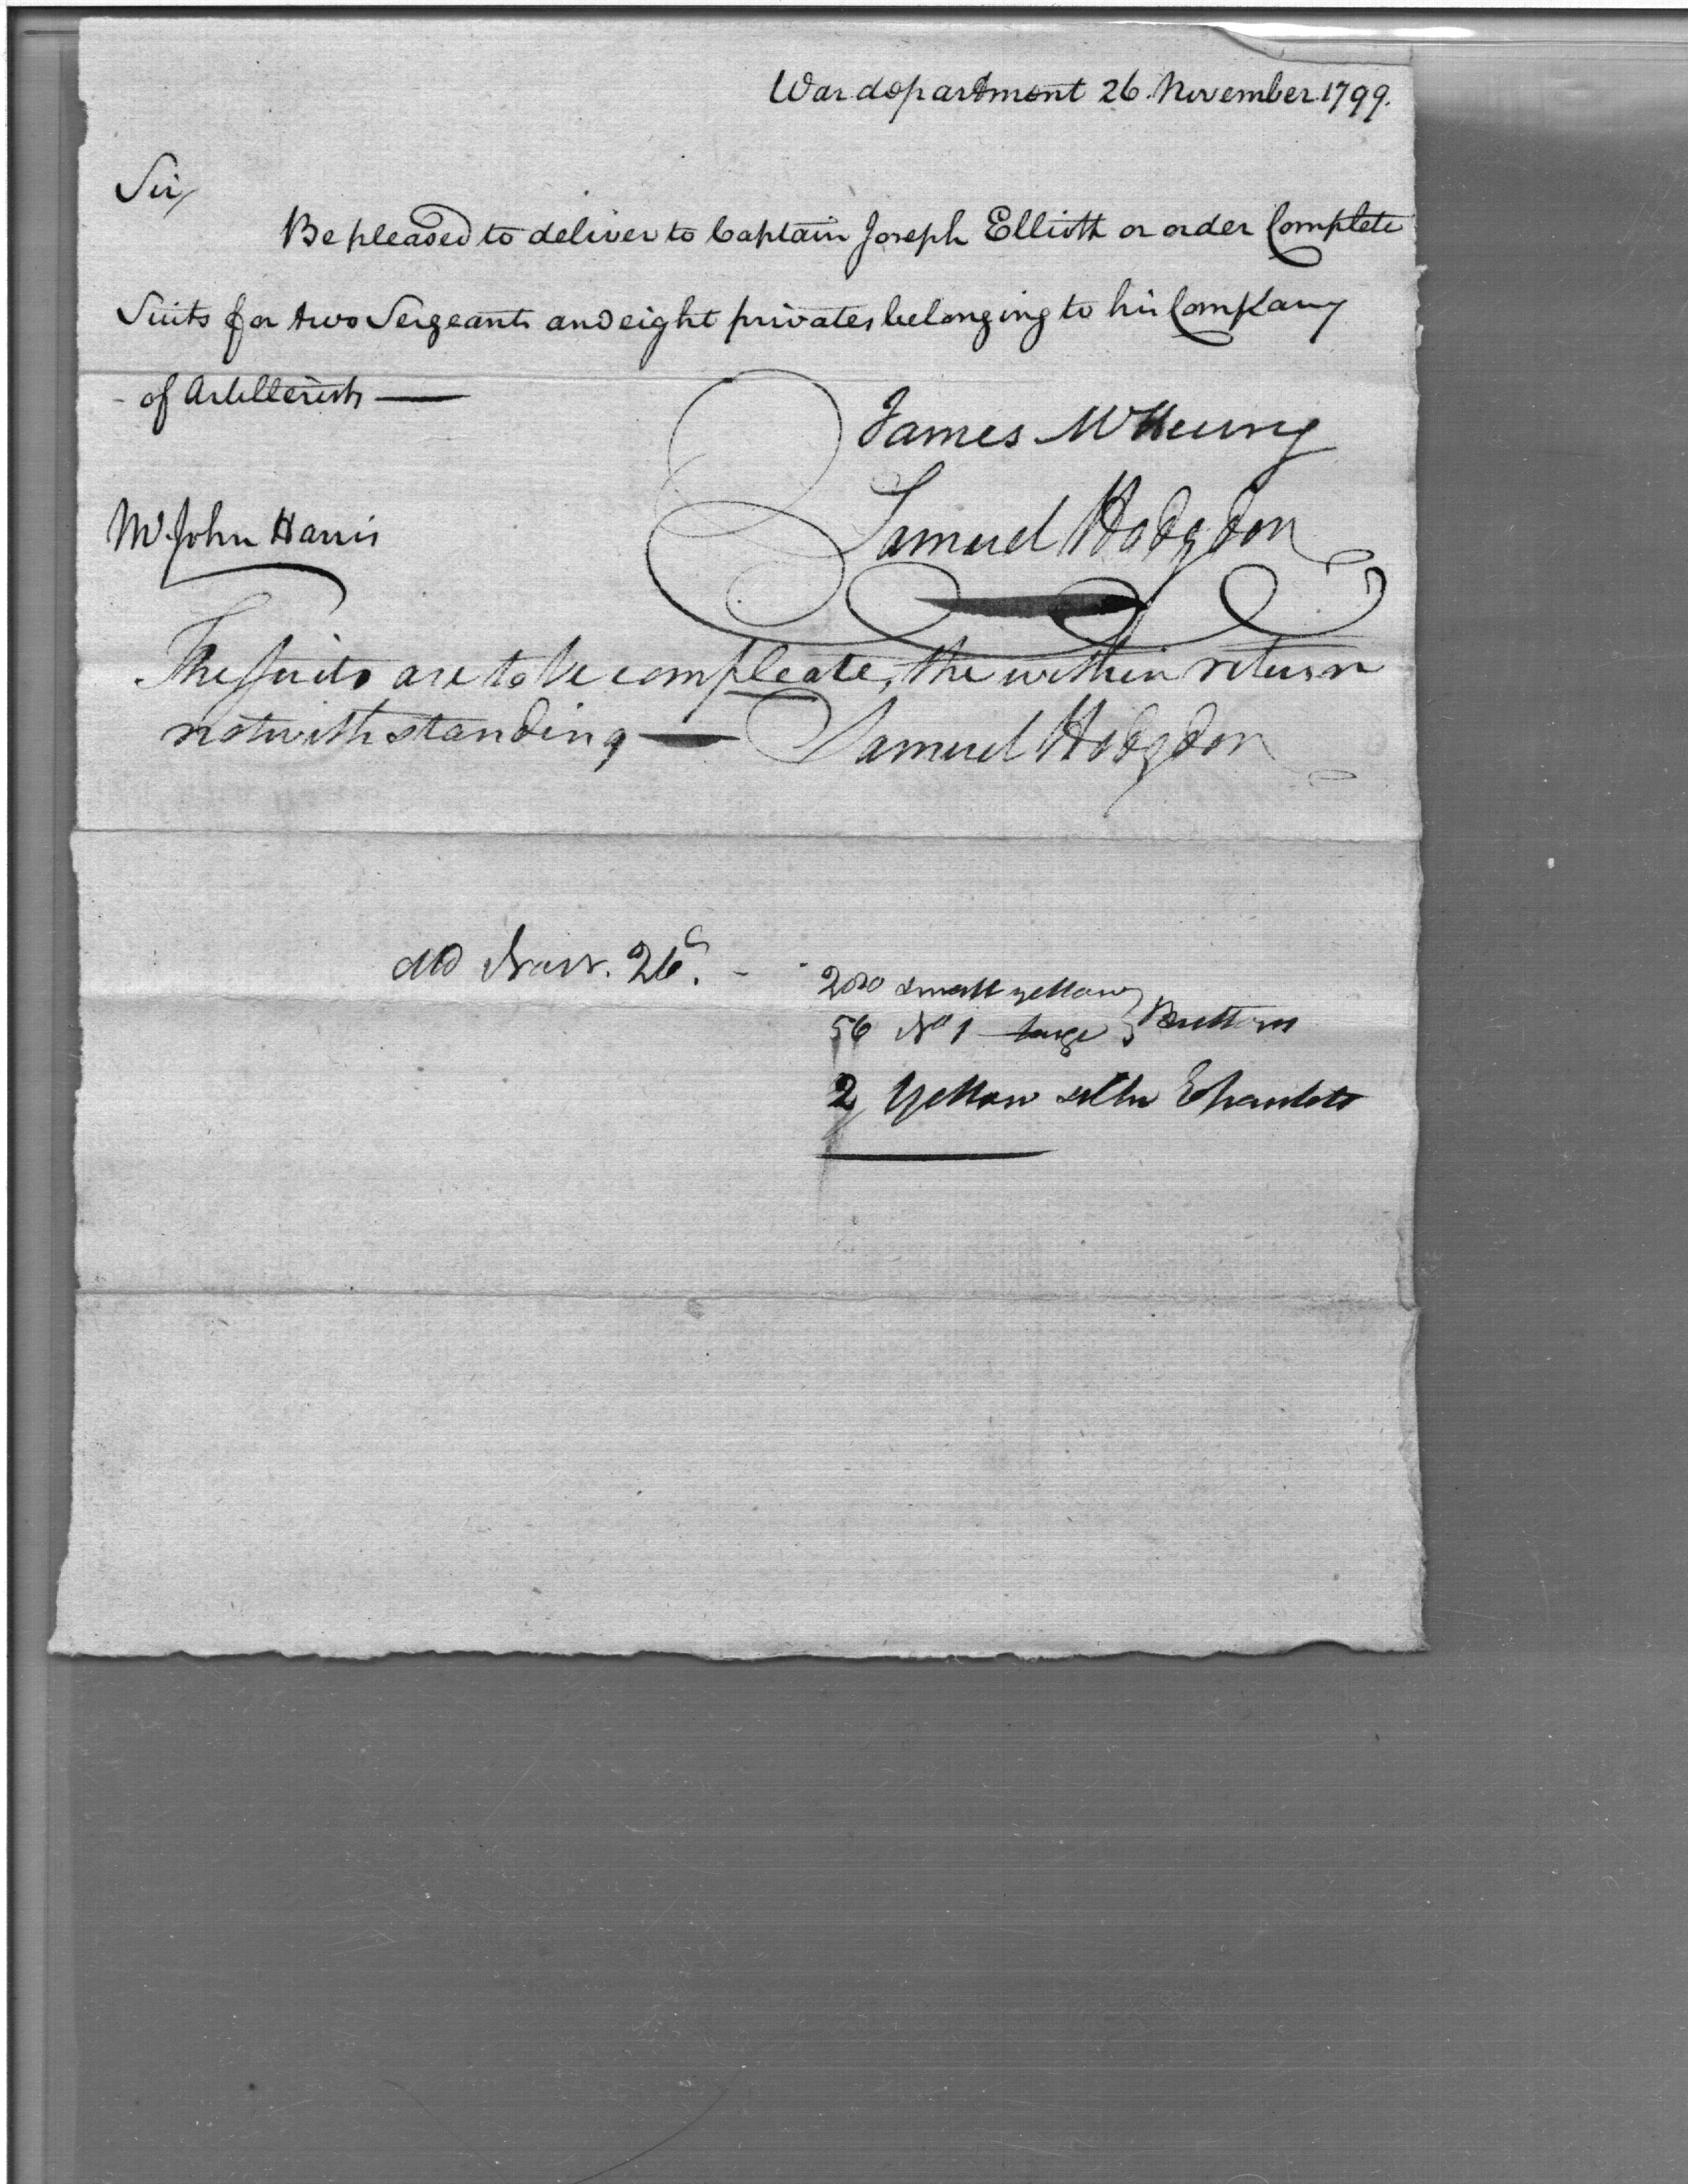 War department 26 November 1799.
Sir,
Be pleased to deliver to Captain Joseph Elliott or order Complete
Suits for two Sergeants and eight privates belonging to his Company
of Artillerists —
James McHenry
Samuel Hodgdon
Mr John Harris
The Suits are to be compleate, the within return
notwithstanding — Samuel Hodgdon
26
200 small yellow
56 No 1 large } Buttons
2 Yellow Epaulets